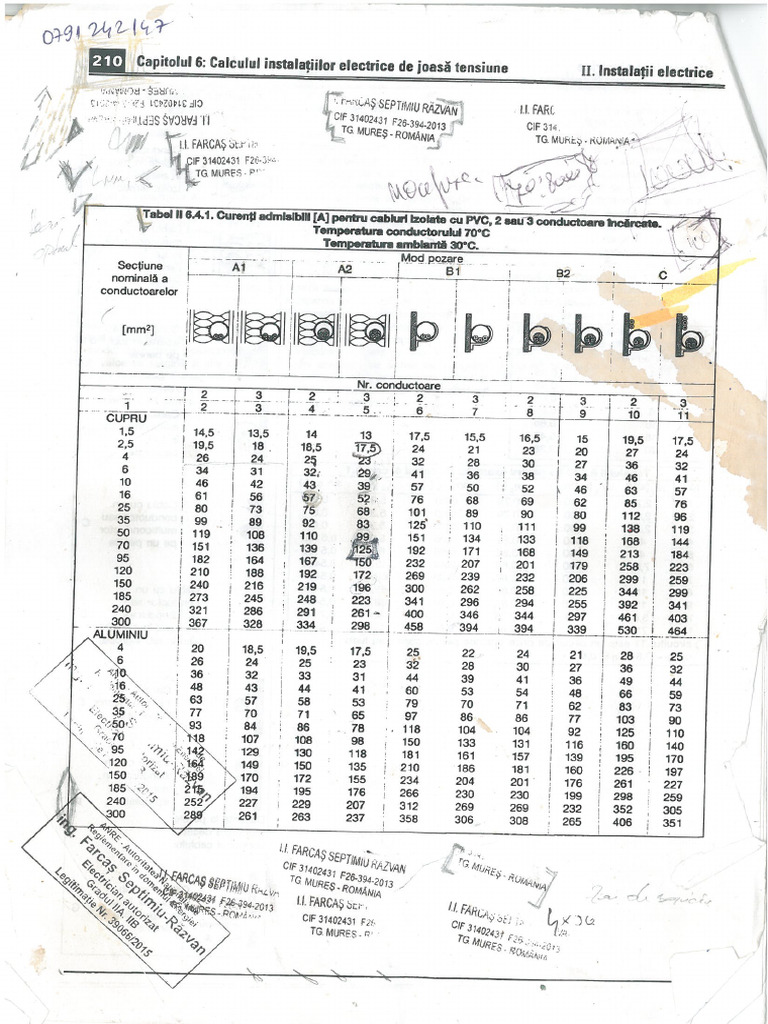 0791 242147
210 Capitolul 6: Calculul instalațiilor electrice de joasă tensiune II. Instalații electrice
CIF 31402431 F26-394-2013
I.I. FARCAȘ SEPTIMIU RĂZVAN
CIF 31402431 F26-394-2013
TG. MUREȘ - ROMÂNIA
I.I. FARC
CIF 314
TG. MUREȘ - ROMÂNIA
I.I. FARCAȘ SEPTI
CIF 31402431 F26-394
TG. MUREȘ - R
Tabel II 6.4.1. Curenți admisibili [A] pentru cabluri izolate cu PVC, 2 sau 3 conductoare încărcate.
Temperatura conductorului 70°C
Temperatura ambiantă 30°C.
Secțiune nominală a conductoarelor [mm²] Mod pozare
A1 A2 B1 B2 C
Nr. conductoare
2 3 2 3 2 3 2 3 2 3
1 2 3 4 5 6 7 8 9 10 11
CUPRU
1,5 14,5 13,5 14 13 17,5 15,5 16,5 15 19,5 17,5
2,5 19,5 18 18,5 17,5 24 21 23 20 27 24
4 26 24 25 23 32 28 30 27 36 32
6 34 31 32 29 41 36 38 34 46 41
10 46 42 43 39 57 50 52 46 63 57
16 61 56 57 52 76 68 69 62 85 76
25 80 73 75 68 101 89 90 80 112 96
35 99 89 92 83 125 110 111 99 138 119
50 119 108 110 99 151 134 133 118 168 144
70 151 136 139 125 192 171 168 149 213 184
95 182 164 167 150 232 207 201 179 258 223
120 210 188 192 172 269 239 232 206 299 259
150 240 216 219 196 300 262 258 225 344 299
185 273 245 248 223 341 296 294 255 392 341
240 321 286 291 261 400 346 344 297 461 403
300 367 328 334 298 458 394 394 339 530 464
ALUMINIU
4 20 18,5 19,5 17,5 25 22 24 21 28 25
6 26 24 25 23 32 28 30 27 36 32
10 36 32 33 31 44 39 41 36 49 44
16 48 43 44 41 60 53 54 48 66 59
25 63 57 58 53 79 70 71 62 83 73
35 77 70 71 65 97 86 86 77 103 90
50 93 84 86 78 118 104 104 92 125 110
70 118 107 108 98 150 133 131 116 160 140
95 142 129 130 118 181 161 157 139 195 170
120 164 149 150 135 210 186 181 160 226 197
150 189 170 172 155 234 204 201 176 261 227
185 215 194 195 176 266 230 230 199 298 259
240 252 227 229 207 312 269 269 232 352 305
300 289 261 263 237 358 306 308 265 406 351
ANRE - Autoritatea Națională
Reglementare în domeniul Energiei
ing. Farcaș Septimiu-Razvan
Electrician autorizat
Gradul IIA, IIB
Legitimație Nr. 39066/2015
I.I. FARCAȘ SEPTIMIU RĂZVAN
CIF 31402431 F26-394-2013
TG. MUREȘ - ROMÂNIA
I.I. FARCAȘ SEPTIMIU RĂZVAN
CIF 31402431 F26-394-2013
TG. MUREȘ - ROMÂNIA
I.I. FARCAȘ SEP
CIF 31402431 F26
TG. MUREȘ - R
TG. MUREȘ - ROMÂNIA
I.I. FARCAȘ SEPT
CIF 31402431 F26-394-2013
TG. MUREȘ - ROMÂNIA